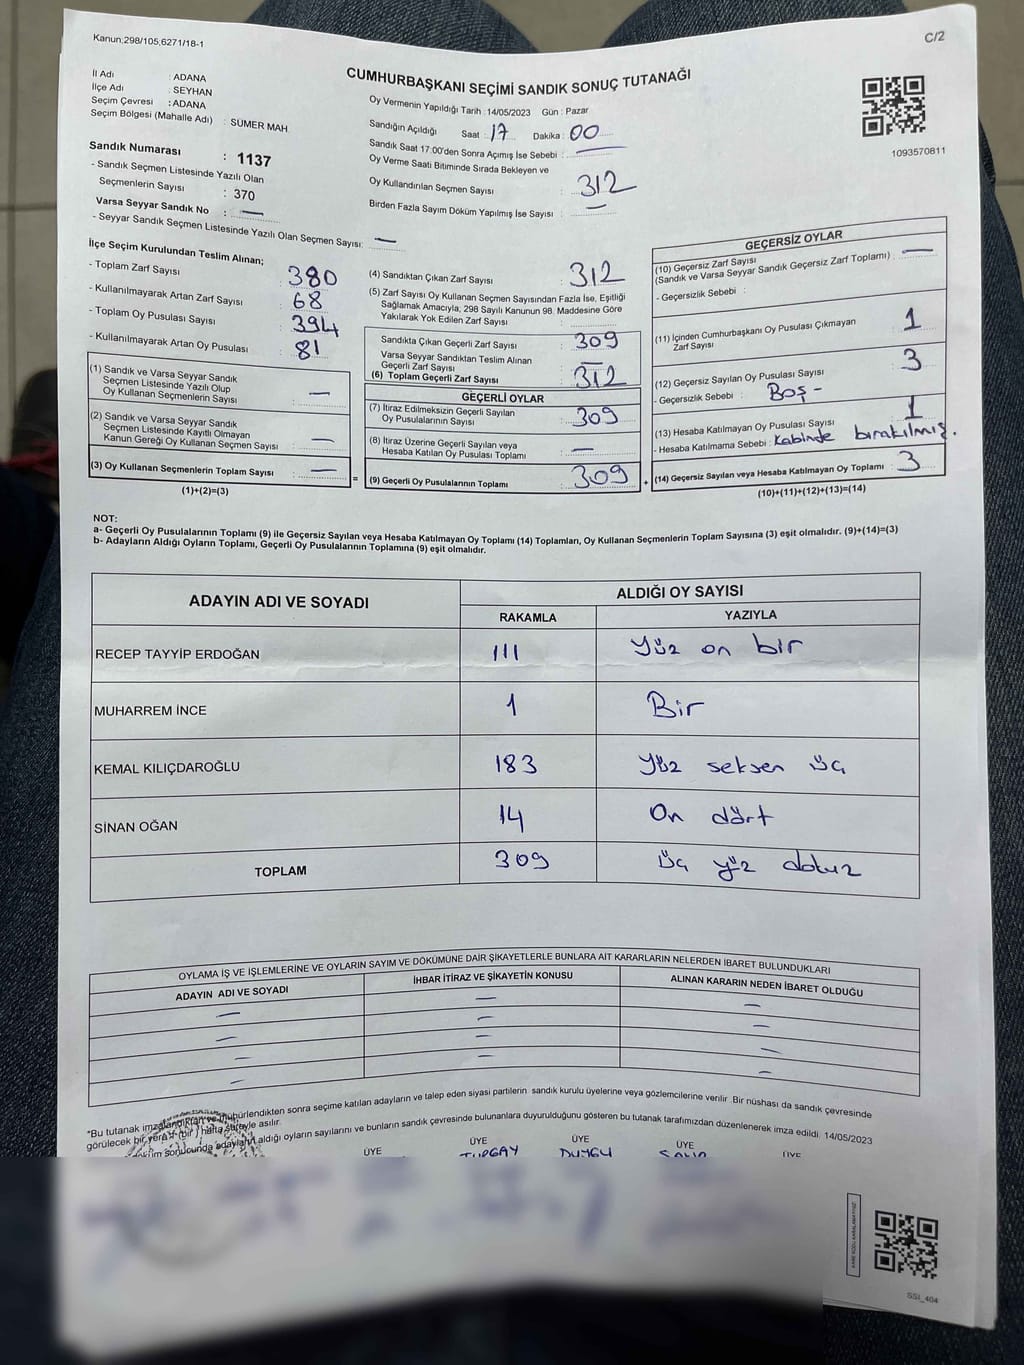 Kanun:298/105,6271/18-1
C/2
CUMHURBAŞKANI SEÇİMİ SANDIK SONUÇ TUTANAĞI
İl Adı : ADANA
İlçe Adı : SEYHAN
Seçim Çevresi : ADANA
Seçim Bölgesi (Mahalle Adı) : SÜMER MAH.
Sandık Numarası : 1137
- Sandık Seçmen Listesinde Yazılı Olan
Seçmenlerin Sayısı : 370
Varsa Seyyar Sandık No : —
- Seyyar Sandık Seçmen Listesinde Yazılı Olan Seçmen Sayısı: —
Oy Vermenin Yapıldığı Tarih : 14/05/2023 Gün : Pazar
Sandığın Açıldığı Saat : 17 Dakika : 00
Sandık Saat 17:00'den Sonra Açımış İse Sebebi : —
Oy Verme Saati Bitiminde Sırada Bekleyen ve
Oy Kullandırılan Seçmen Sayısı : 312
Birden Fazla Sayım Döküm Yapılmış İse Sayısı : —
1093570811
İlçe Seçim Kurulundan Teslim Alınan;
- Toplam Zarf Sayısı : 380
- Kullanılmayarak Artan Zarf Sayısı : 68
- Toplam Oy Pusulası Sayısı : 394
- Kullanılmayarak Artan Oy Pusulası : 81
(1) Sandık ve Varsa Seyyar Sandık
Seçmen Listesinde Yazılı Olup
Oy Kullanan Seçmenlerin Sayısı : —
(2) Sandık ve Varsa Seyyar Sandık
Seçmen Listesinde Kayıtlı Olmayan
Kanun Gereği Oy Kullanan Seçmen Sayısı : —
(3) Oy Kullanan Seçmenlerin Toplam Sayısı : —
(1)+(2)=(3)
=
(4) Sandıktan Çıkan Zarf Sayısı : 312
(5) Zarf Sayısı Oy Kullanan Seçmen Sayısından Fazla İse, Eşitliği
Sağlamak Amacıyla, 298 Sayılı Kanunun 98. Maddesine Göre
Yakılarak Yok Edilen Zarf Sayısı :
Sandıkta Çıkan Geçerli Zarf Sayısı : 309
Varsa Seyyar Sandıktan Teslim Alınan
Geçerli Zarf Sayısı : —
(6) Toplam Geçerli Zarf Sayısı : 312
GEÇERLİ OYLAR
(7) İtiraz Edilmeksizin Geçerli Sayılan
Oy Pusulalarının Sayısı : 309
(8) İtiraz Üzerine Geçerli Sayılan veya
Hesaba Katılan Oy Pusulası Toplamı : —
(9) Geçerli Oy Pusulalarının Toplamı : 309
+
GEÇERSİZ OYLAR
(10) Geçersiz Zarf Sayısı
(Sandık ve Varsa Seyyar Sandık Geçersiz Zarf Toplamı) : —
- Geçersizlik Sebebi :
(11) İçinden Cumhurbaşkanı Oy Pusulası Çıkmayan
Zarf Sayısı : 1
(12) Geçersiz Sayılan Oy Pusulası Sayısı : 3
- Geçersizlik Sebebi : Boş -
(13) Hesaba Katılmayan Oy Pusulası Sayısı : 1
- Hesaba Katılmama Sebebi : kabinde bırakılmış.
(14) Geçersiz Sayılan veya Hesaba Katılmayan Oy Toplamı : 3
(10)+(11)+(12)+(13)=(14)
NOT:
a- Geçerli Oy Pusulalarının Toplamı (9) ile Geçersiz Sayılan veya Hesaba Katılmayan Oy Toplamı (14) Toplamları, Oy Kullanan Seçmenlerin Toplam Sayısına (3) eşit olmalıdır. (9)+(14)=(3)
b- Adayların Aldığı Oyların Toplamı, Geçerli Oy Pusulalarının Toplamına (9) eşit olmalıdır.
ADAYIN ADI VE SOYADI ALDIĞI OY SAYISI
RAKAMLA YAZIYLA
RECEP TAYYİP ERDOĞAN 111 Yüz on bir
MUHARREM İNCE 1 Bir
KEMAL KILIÇDAROĞLU 183 Yüz seksen üç
SİNAN OĞAN 14 On dört
TOPLAM 309 üç yüz dokuz
OYLAMA İŞ VE İŞLEMLERİNE VE OYLARIN SAYIM VE DÖKÜMÜNE DAİR ŞİKAYETLERLE BUNLARA AİT KARARLARIN NELERDEN İBARET BULUNDUKLARI
ADAYIN ADI VE SOYADI İHBAR İTİRAZ VE ŞİKAYETİN KONUSU ALINAN KARARIN NEDEN İBARET OLDUĞU
— — —
— — —
— — —
— — —
"Bu tutanak imzalandıktan ve mühürlendikten sonra seçime katılan adayların ve talep eden siyasi partilerin sandık kurulu üyelerine veya gözlemcilerine verilir. Bir nüshası da sandık çevresinde
görülecek bir yere 1 (bir) hafta süreyle asılır.
sonucunda adayların aldığı oyların sayılarını ve bunların sandık çevresinde bulunanlara duyurulduğunu gösteren bu tutanak tarafımızdan düzenlenerek imza edildi. 14/05/2023
ÜYE ÜYE ÜYE ÜYE ÜYE
TURGAY DUYGU
SSI_404